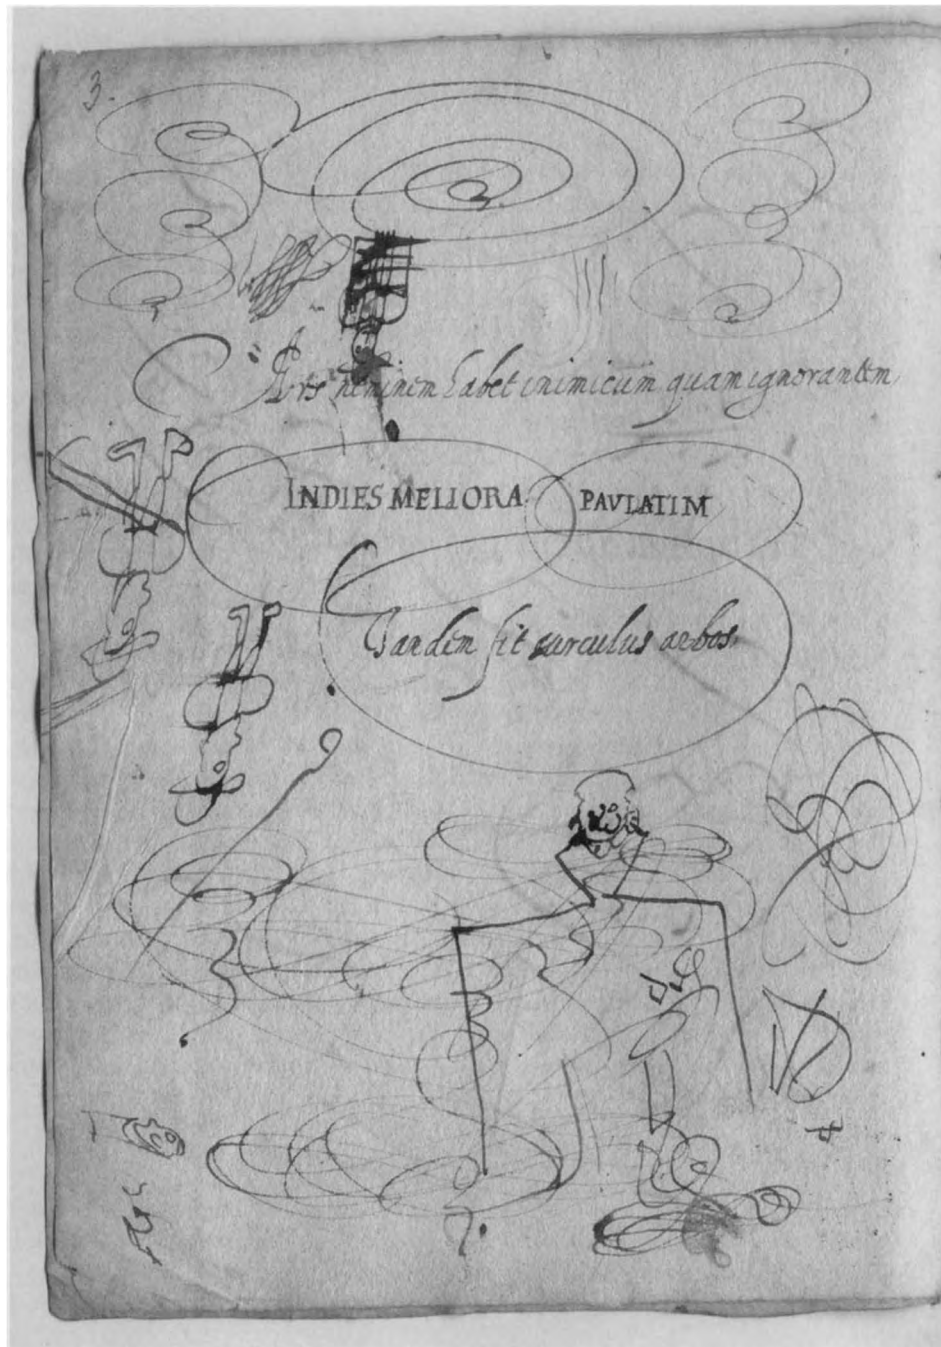 3.
Ars neminem habet inimicum quam ignorantem
INDIES MELIORA PAVLATIM
Tandem fit surculus arbos.